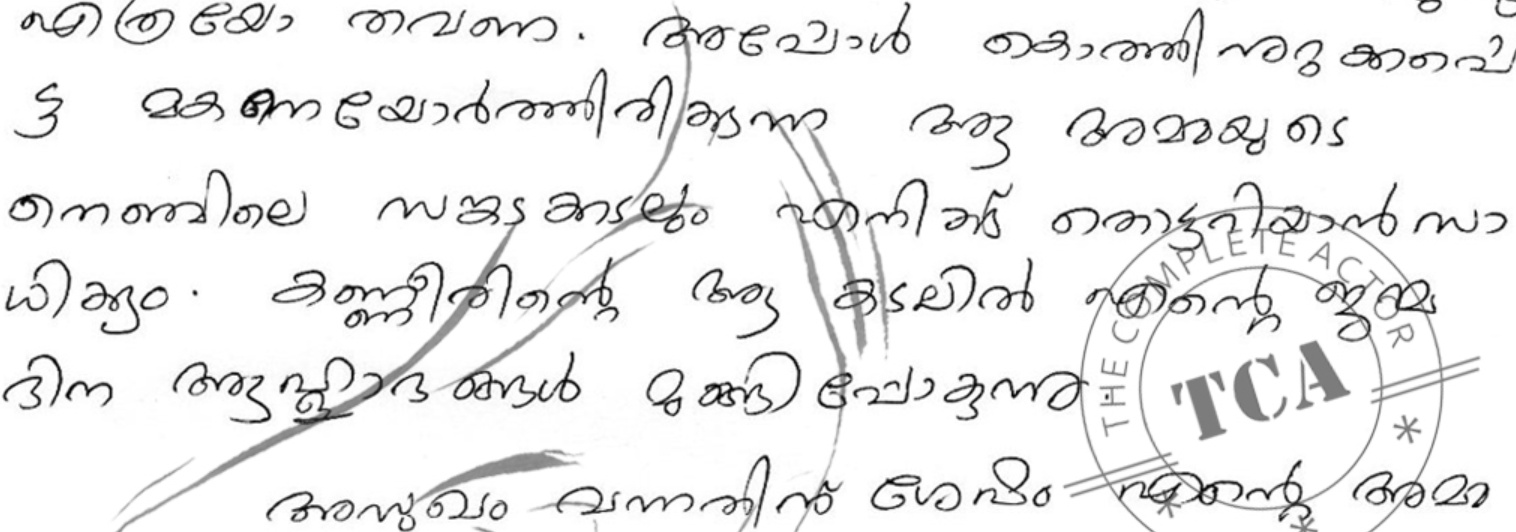 എത്രയോ തവണ. അപ്പോൾ കൊത്തിനുറുക്കപ്പെ
ട്ട മകനെയോർത്തിരിക്കുന്ന ആ അമ്മയുടെ
നെഞ്ചിലെ സങ്കടക്കടലും എനിക്ക് തൊട്ടറിയാൻ സാ
ധിക്കും. കണ്ണീരിന്റെ ആ കടലിൽ എന്റെ ജന്മ
ദിന ആഹ്ലാദങ്ങൾ മുങ്ങിപ്പോകുന്നു
അസുഖം വന്നതിന് ശേഷം എന്റെ അമ്മ
THE COMPLETE ACTOR
TCA